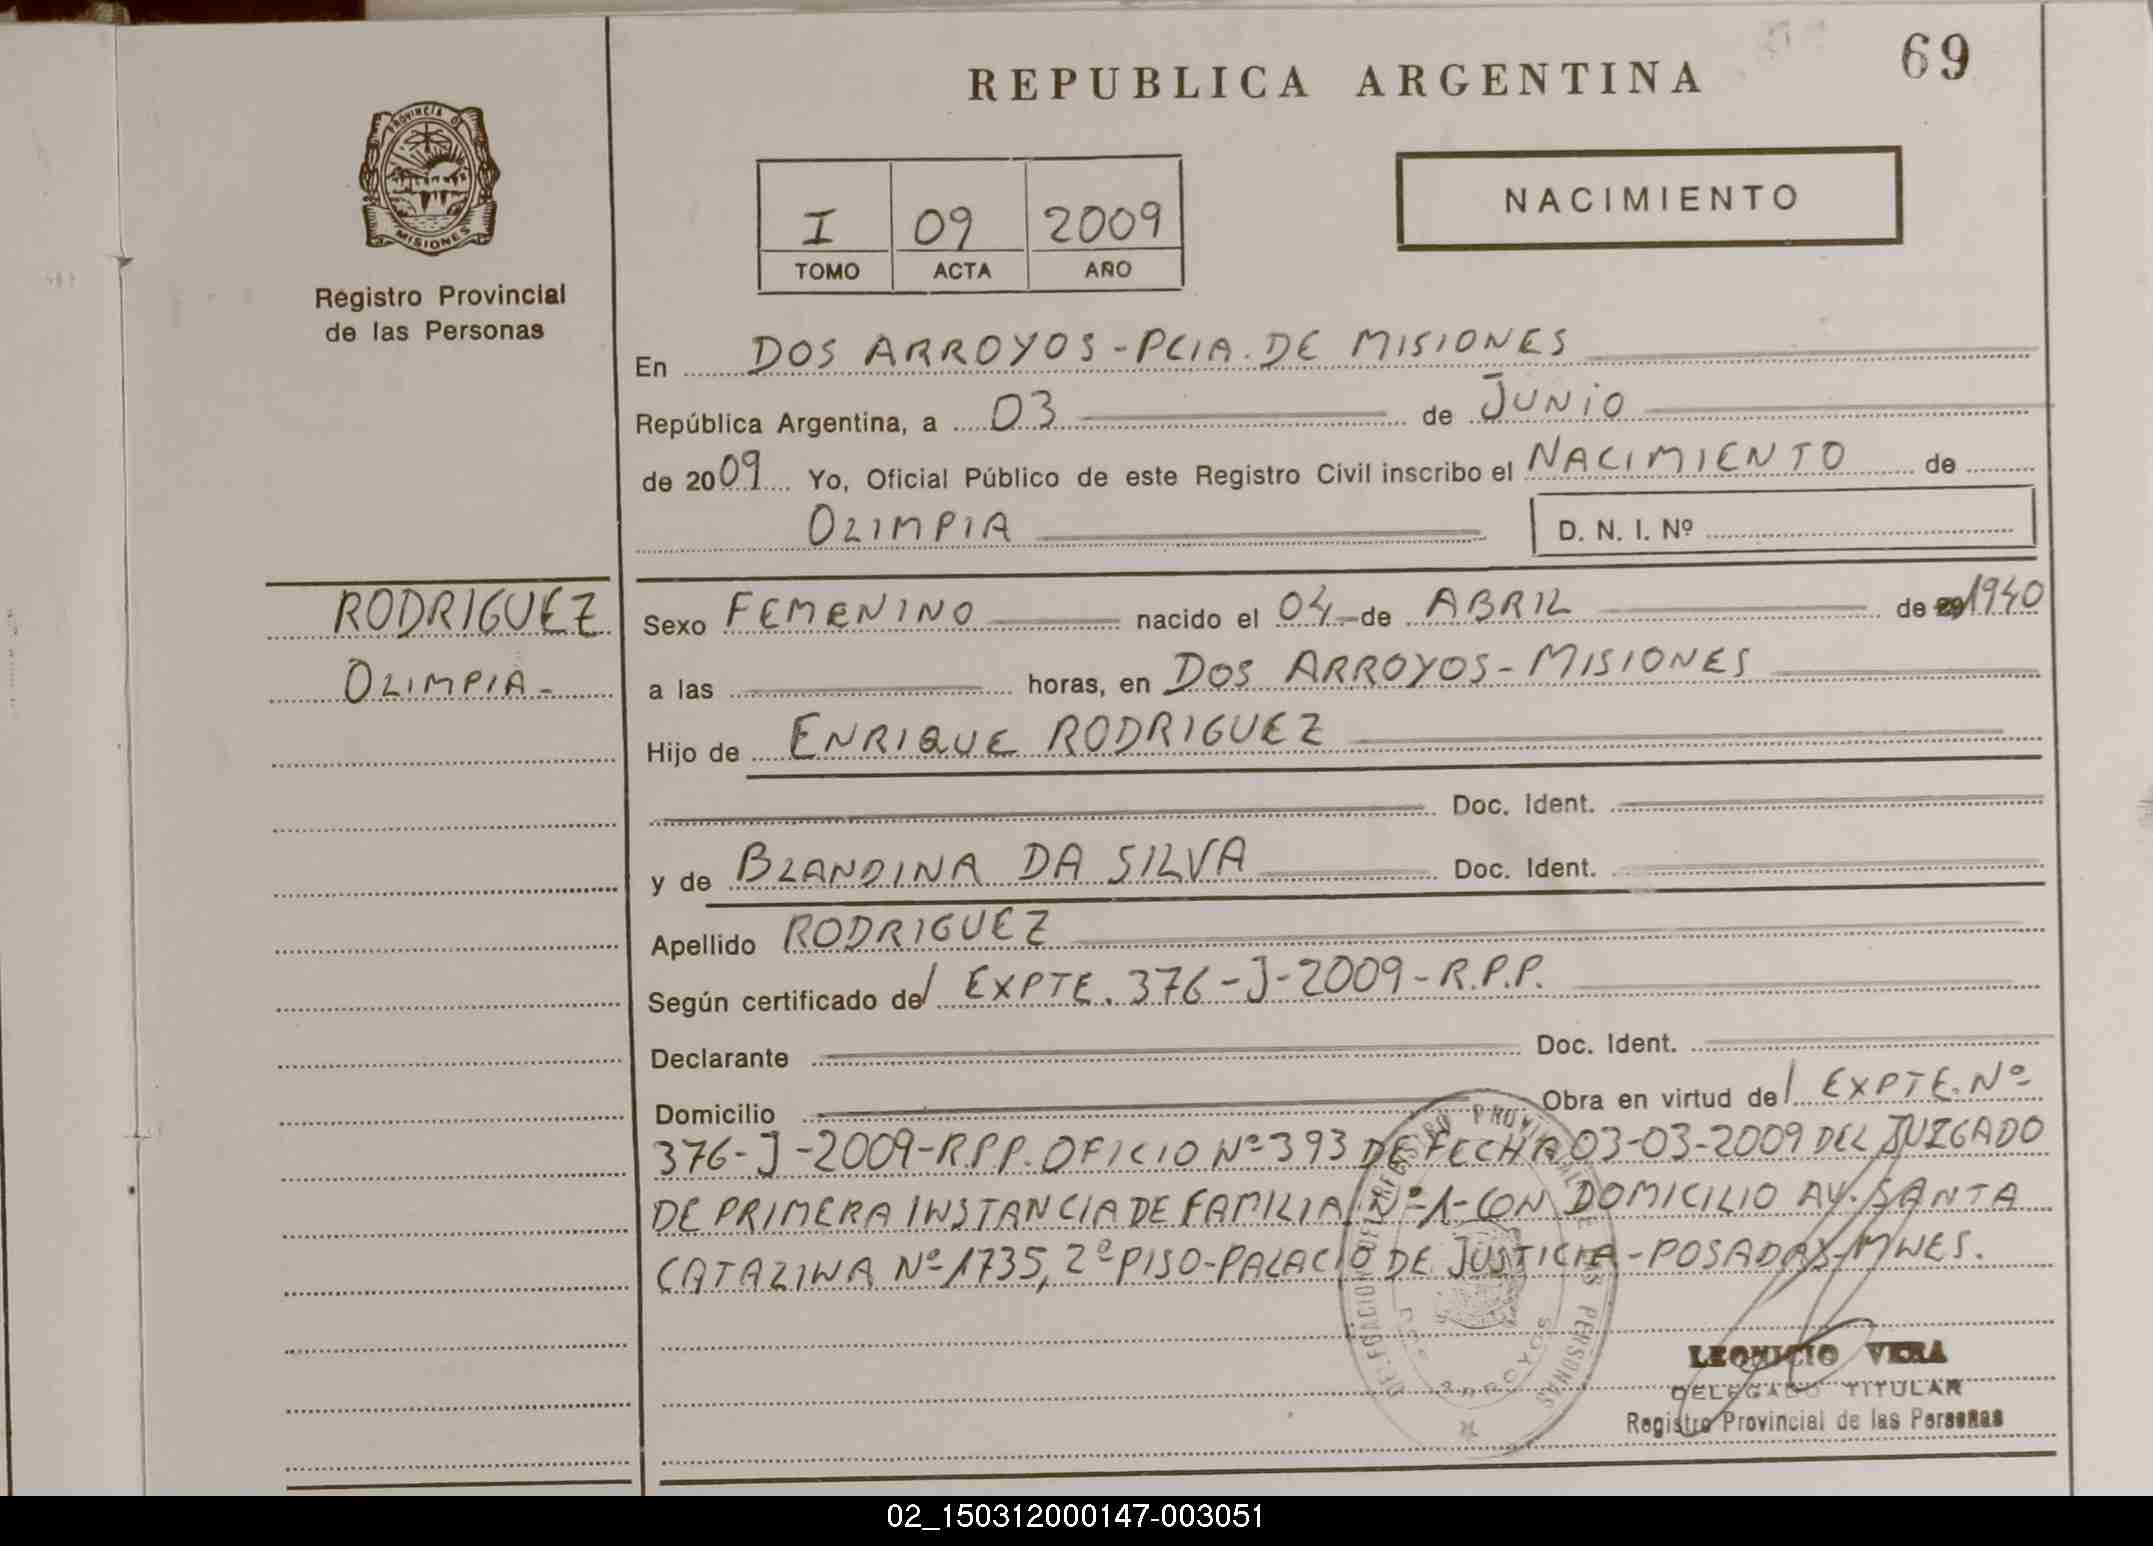 69
REPUBLICA ARGENTINA
PROVINCIA D
MISIONES
Registro Provincial
de las Personas
I 09 2009
TOMO ACTA AÑO
NACIMIENTO
En DOS ARROYOS - PCIA. DE MISIONES
República Argentina, a 03 de JUNIO
de 2009 Yo, Oficial Público de este Registro Civil inscribo el NACIMIENTO de
OLIMPIA D. N. I. Nº
RODRIGUEZ
OLIMPIA -
Sexo FEMENINO nacido el 04 de ABRIL de 1940
a las horas, en DOS ARROYOS - MISIONES
Hijo de ENRIQUE RODRIGUEZ
Doc. Ident.
y de BLANDINA DA SILVA Doc. Ident.
Apellido RODRIGUEZ
Según certificado de/ EXPTE. 376-J-2009-R.P.P.
Declarante Doc. Ident.
Domicilio Obra en virtud de/ EXPTE. Nº
376-J-2009-R.P.P. OFICIO Nº 393 DE FECHA 03-03-2009 DEL JUZGADO
DE PRIMERA INSTANCIA DE FAMILIA Nº 1 - CON DOMICILIO AV. SANTA
CATALINA Nº 1735, 2º PISO - PALACIO DE JUSTICIA - POSADAS - MNES.
DELEGACION DEL REGISTRO PROVINCIAL DE LAS PERSONAS
DOS ARROYOS
LEONICIO VERA
DELEGADO TITULAR
Registro Provincial de las Personas
02_150312000147-003051